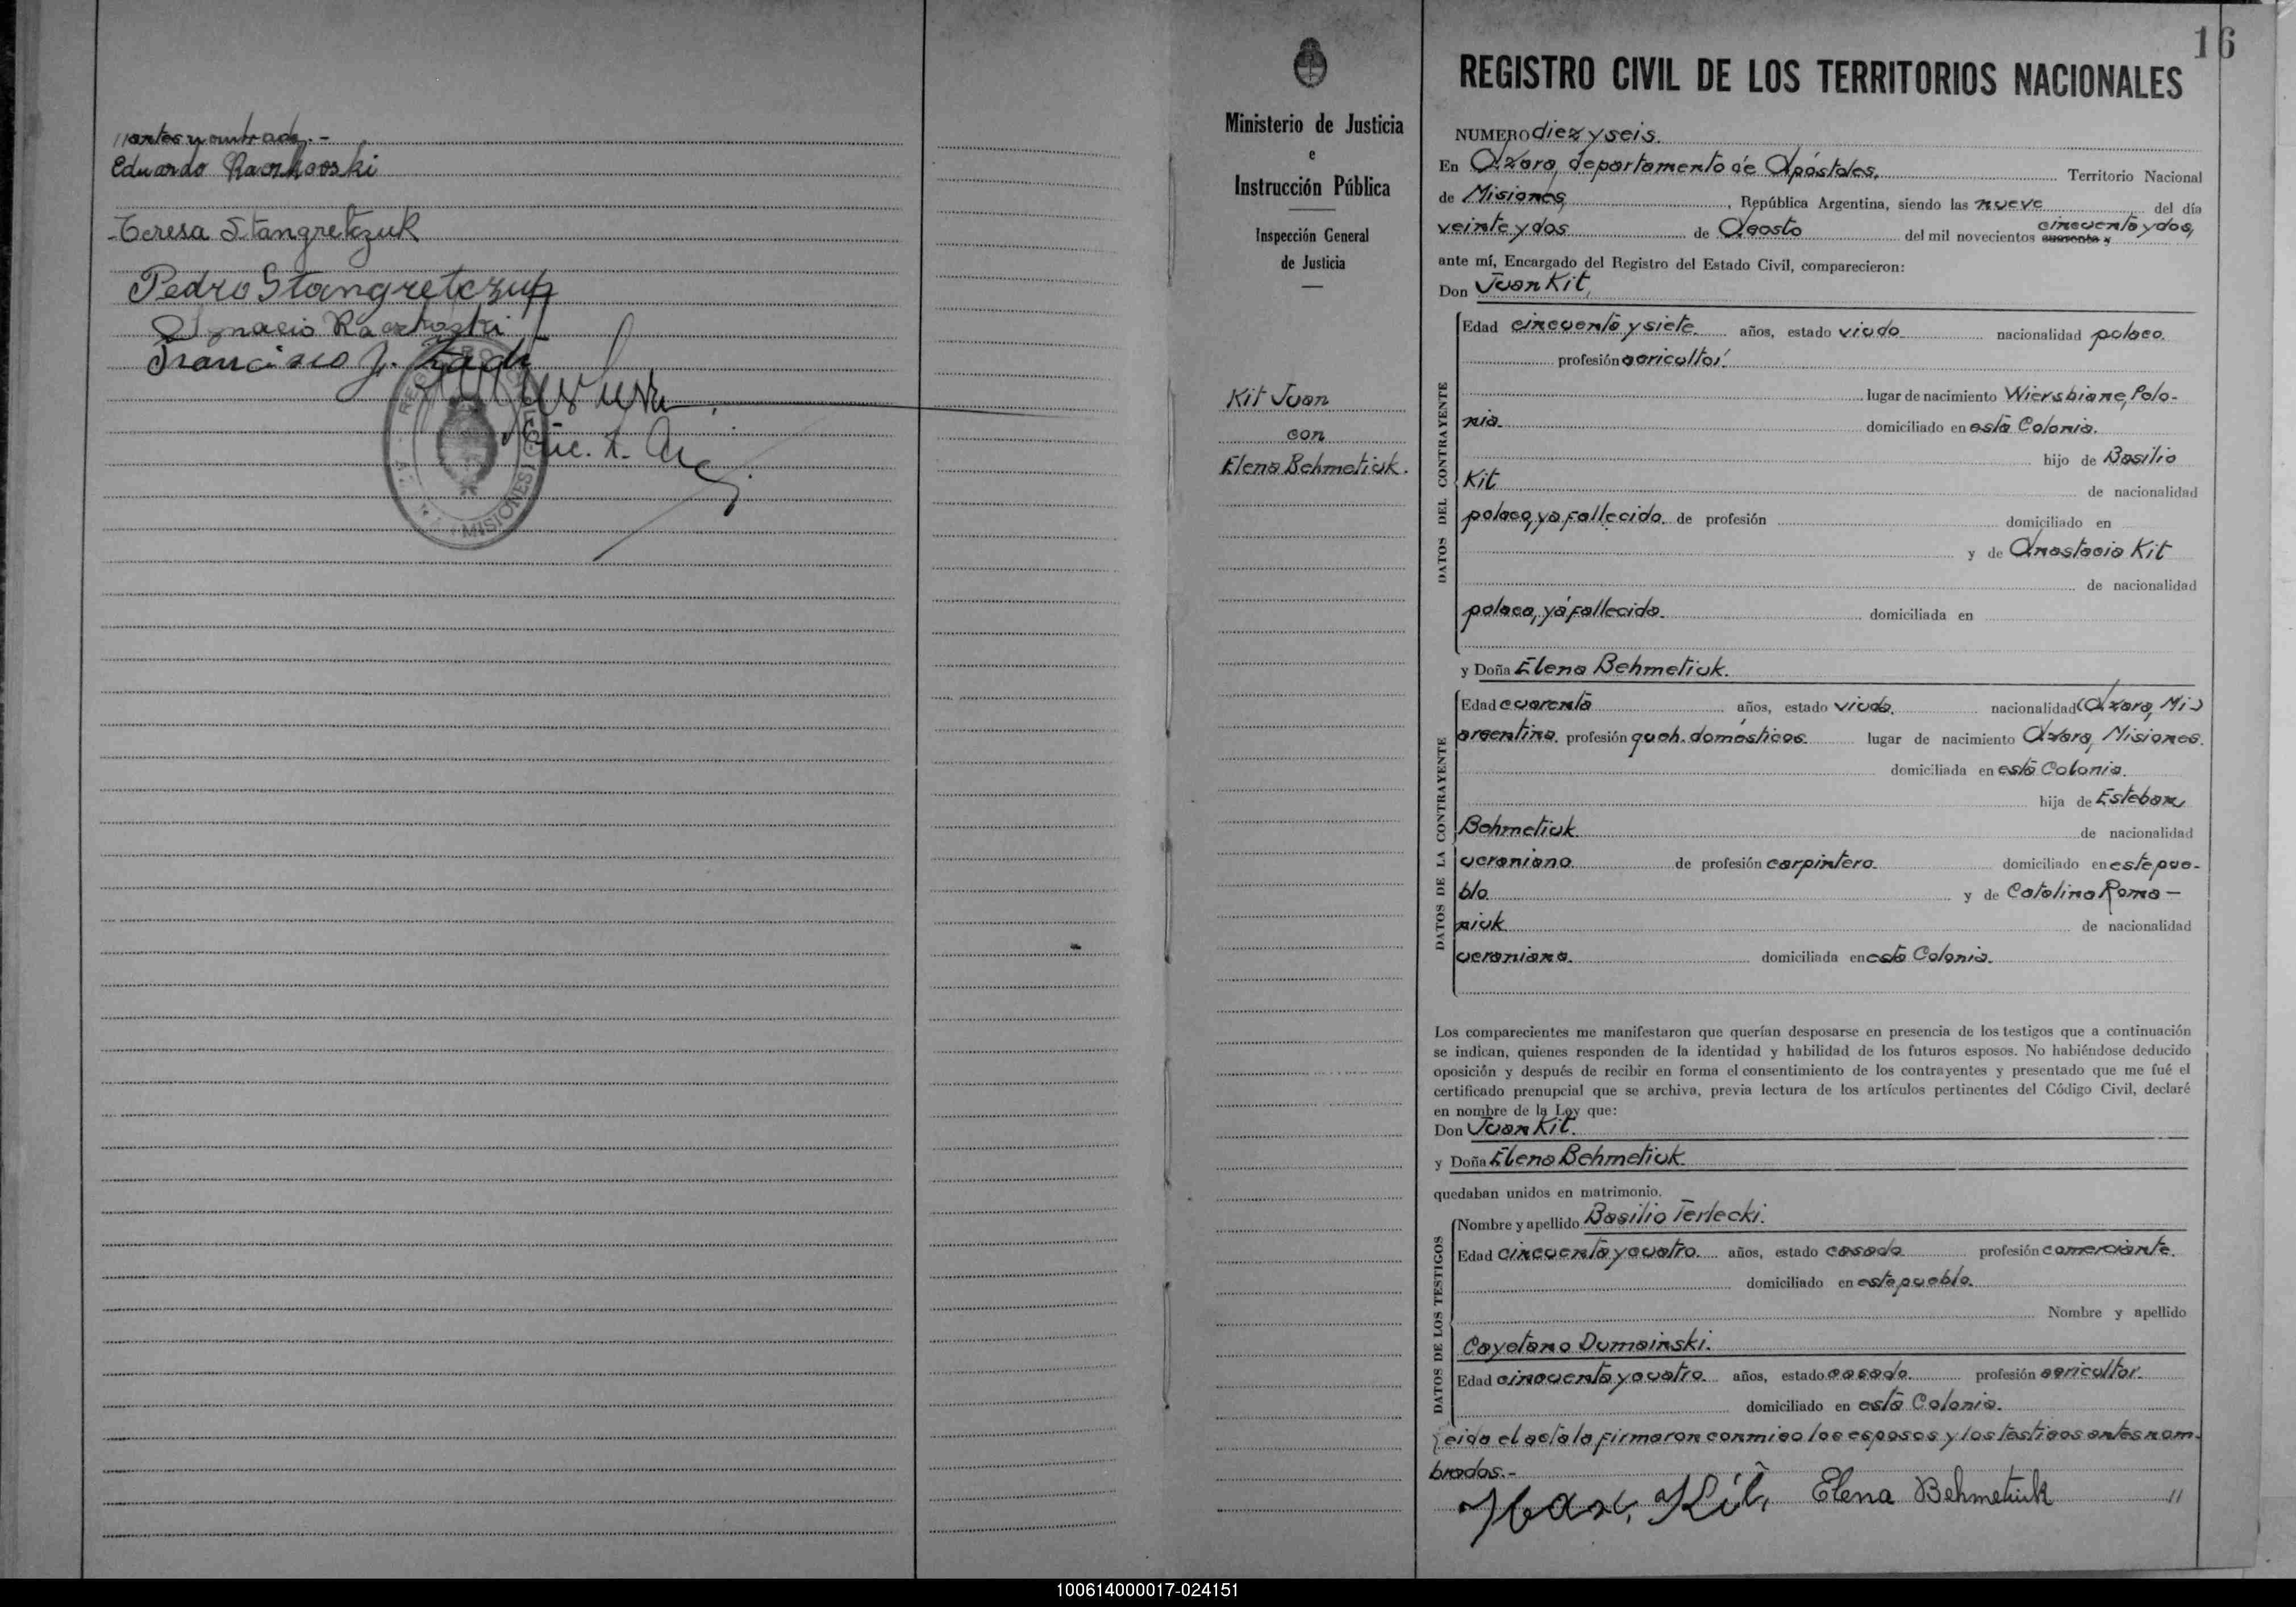 antes nombrados.-
Eduardo Raczkowski
Teresa Stangretczuk
Pedro Stangretczuk
Ignacio Raczkoski
Francisco J.
MISIONES
16
Ministerio de Justicia
e
Instrucción Pública
Inspección General
de Justicia
Kit Juan
con
Elena Behmetiuk.
REGISTRO CIVIL DE LOS TERRITORIOS NACIONALES
NUMERO diez y seis.
En Azara, departamento de Apóstoles, Territorio Nacional
de Misiones, República Argentina, siendo las nueve del día
veinte y dos de Agosto del mil novecientos cuarenta y cincuenta y dos,
ante mí, Encargado del Registro del Estado Civil, comparecieron:
Don Juan Kit,
DATOS DEL CONTRAYENTE
Edad cincuenta y siete años, estado viudo nacionalidad polaco.
profesión agricultor.
lugar de nacimiento Wiersbiane, Polo-
nia. domiciliado en esta Colonia.
hijo de Basilio
Kit de nacionalidad
polaco, ya fallecido. de profesión domiciliado en
y de Anastacia Kit
de nacionalidad
polaca, ya fallecida. domiciliada en
y Doña Elena Behmetiuk.
DATOS DE LA CONTRAYENTE
Edad cuarenta años, estado viuda. nacionalidad (Azara, Mi-)
argentina. profesión queh. domésticos. lugar de nacimiento Azara, Misiones.
domiciliada en esta Colonia.
hija de Esteban
Behmetiuk de nacionalidad
ucraniano de profesión carpintero. domiciliado en este pue-
blo. y de Catalina Roma-
niuk de nacionalidad
ucraniana. domiciliada en esta Colonia.
Los comparecientes me manifestaron que querían desposarse en presencia de los testigos que a continuación
se indican, quienes responden de la identidad y habilidad de los futuros esposos. No habiéndose deducido
oposición y después de recibir en forma el consentimiento de los contrayentes y presentado que me fué el
certificado prenupcial que se archiva, previa lectura de los artículos pertinentes del Código Civil, declaré
en nombre de la Ley que:
Don Juan Kit.
y Doña Elena Behmetiuk
quedaban unidos en matrimonio.
DATOS DE LOS TESTIGOS
Nombre y apellido Basilio Terlecki.
Edad cincuenta y cuatro. años, estado casado profesión comerciante.
domiciliado en este pueblo.
Nombre y apellido
Cayetano Dumainski.
Edad cincuenta y cuatro años, estado casado. profesión agricultor.
domiciliado en esta Colonia.
Leida el acta la firmaron conmigo los esposos y los testigos antes nom-
brados.-
Kit, Elena Behmetiuk //
100614000017-024151